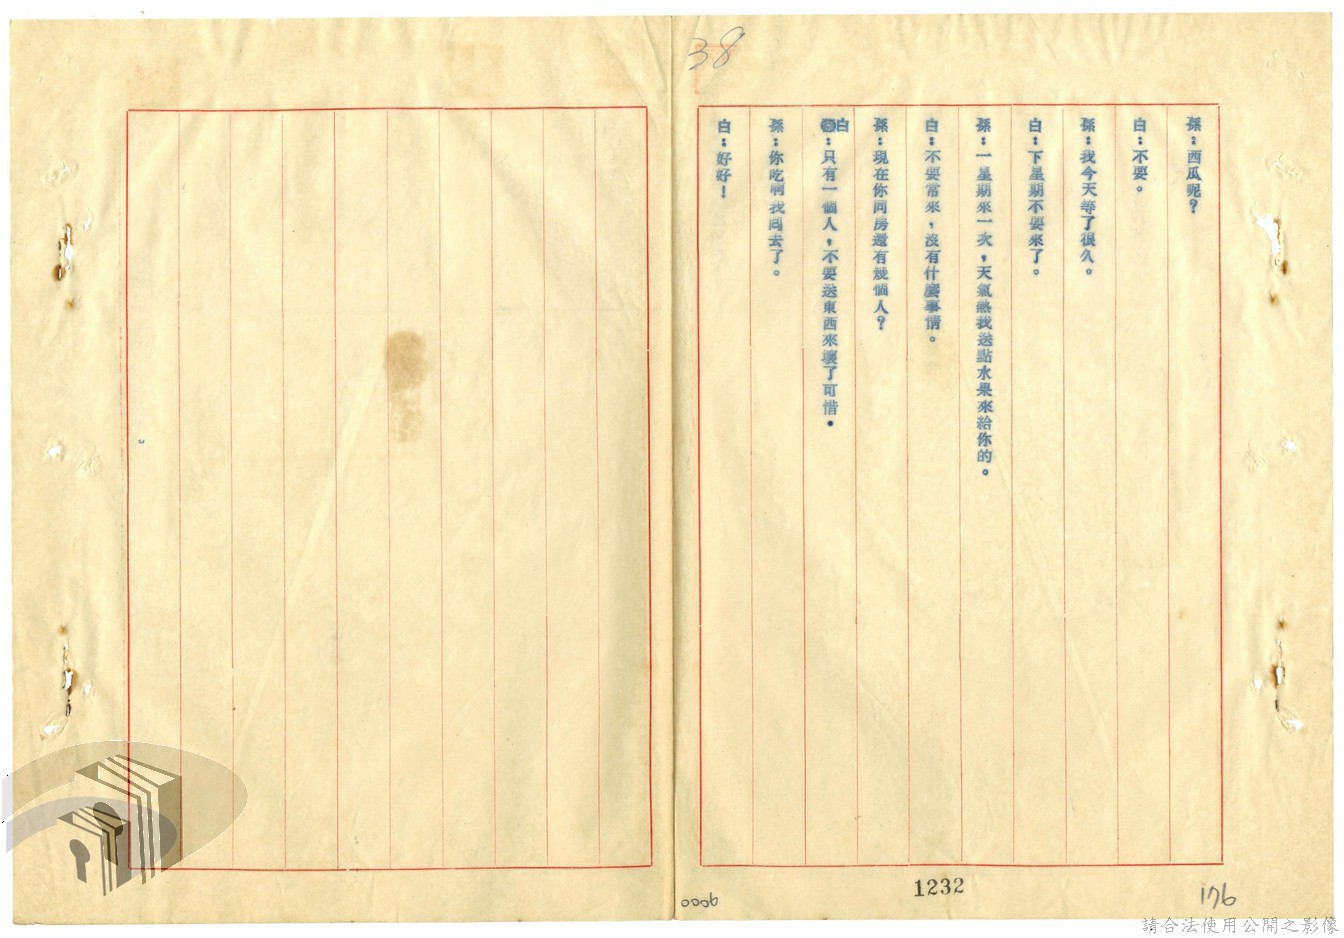 38
孫：西瓜呢？
白：不要。
孫：我今天等了很久。
白：下星期不要來了。
孫：一星期來一次，天氣熱我送點水果來給你的。
白：不要常來，沒有什麼事情。
孫：現在你同房還有幾個人？
白：只有一個人，不要送東西來壞了可惜。
孫：你吃啊我回去了。
白：好好！
0006
1232
176
請合法使用公開之影像